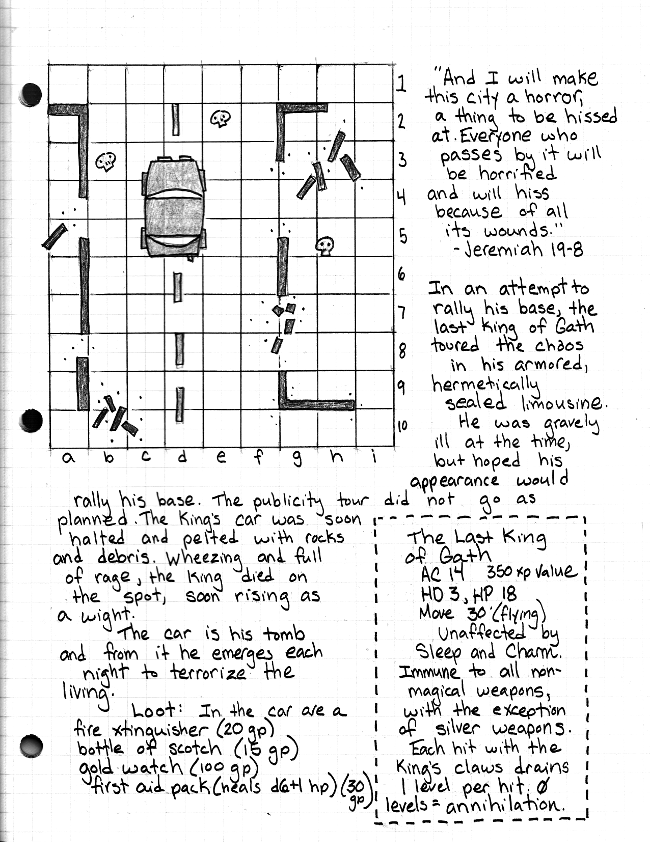 1
2
3
4
5
6
7
8
9
10
a b c d e f g h i
"And I will make
this city a horror,
a thing to be hissed
at. Everyone who
passes by it will
be horrified
and will hiss
because of all
its wounds."
- Jeremiah 19-8
In an attempt to
rally his base, the
last king of Gath
toured the chaos
in his armored,
hermetically
sealed limousine.
He was gravely
ill at the time,
but hoped his
appearance would
rally his base. The publicity tour did not go as
planned. The King's car was soon
halted and pelted with rocks
and debris. Wheezing and full
of rage, the King died on
the spot, soon rising as
a wight.
The car is his tomb
and from it he emerges each
night to terrorize the
living.
Loot: In the car are a
fire xtinguisher (20 gp)
bottle of scotch (15 gp)
gold watch (100 gp)
first aid pack (heals d6+1 hp) (30
gp)
The Last King
of Gath
AC 14 350 xp value
HD 3, HP 18
Move 30' (flying)
Unaffected by
Sleep and Charm.
Immune to all non-
magical weapons,
with the exception
of silver weapons.
Each hit with the
King's claws drains
1 level per hit. 0
levels = annihilation.